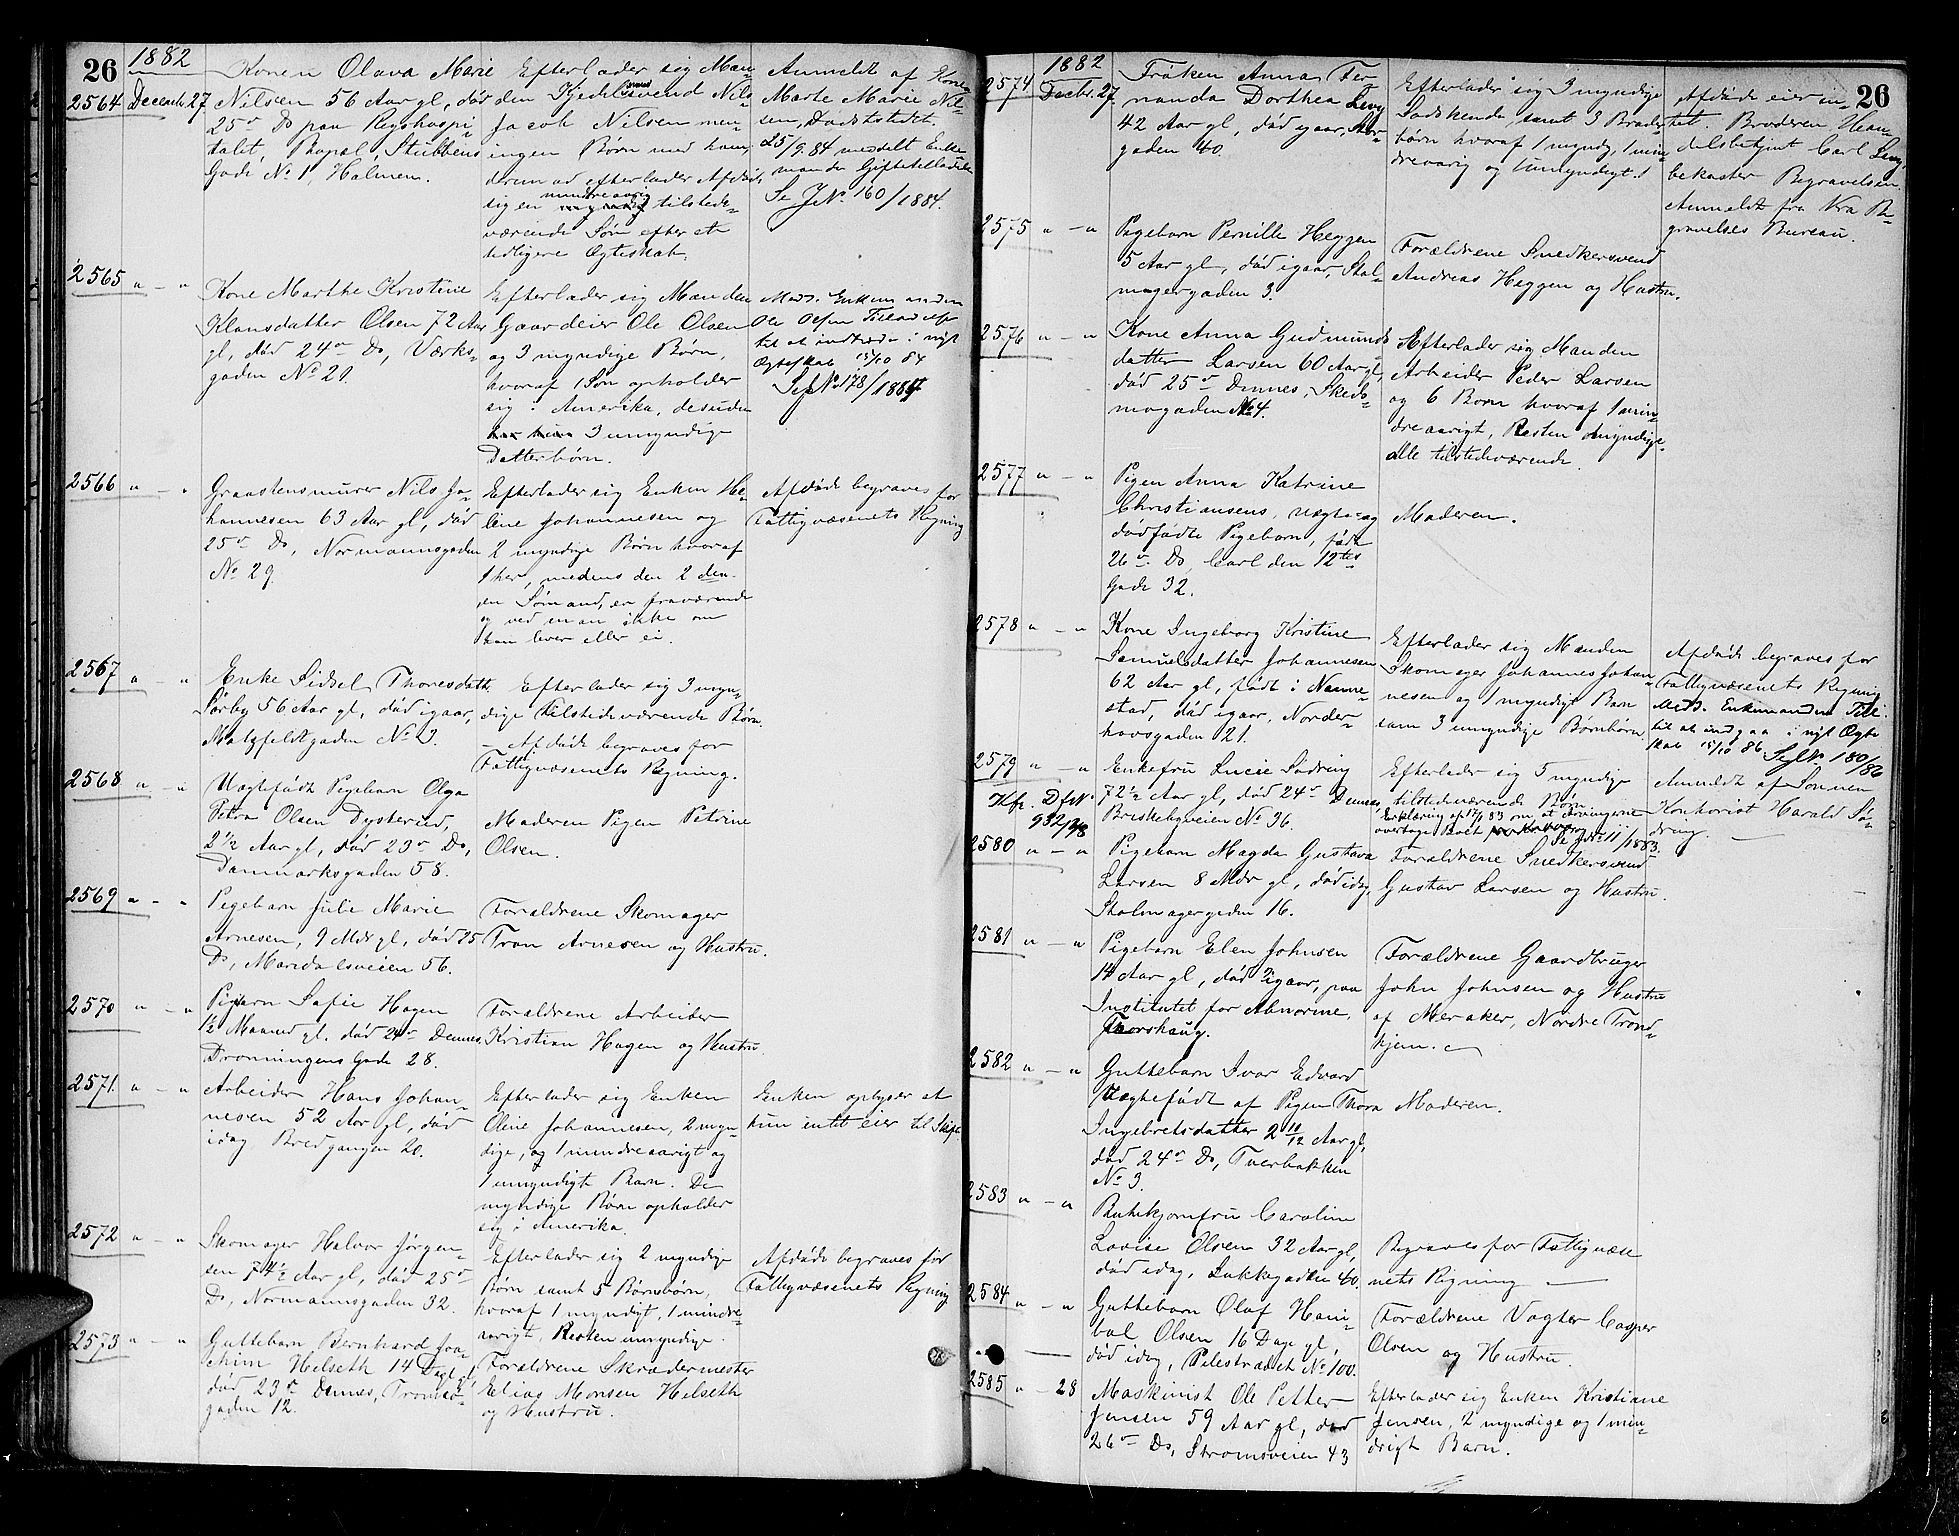 26
1882
2564 Decemb. 27
Konen Olava Marie
Nilsen 56 Aar gl, død
25de Ds paa Rigshospi-
talet, Bopæl, Stubbens
Gade No 1, Holmen.
Efterlader sig Man-
den Kjedelsmedsvend Nils
Jacob Nilsen men
ingen Børn med ham,
derimod efterlader Afdøde
sig en mindreaarig tilstede-
værende Søn efter et
tidligere Ægteskab.
Anmeldt af Kone
Marte Marie Nil-
sen, Dødsstedet.
25/9.84 meddelt Enke-
manden Giftetilladelse
Se JNo 160/1884.
2565 " - "
Kone Marthe Kristine
Klausdatter Olsen 72 Aar
gl, død 24de Ds, Værks-
gaden No 21.
Efterlader sig Manden
Gaardeier Ole Olsen
og 3 myndige Børn,
hvoraf 1 Søn opholder
sig i Amerika, desuden
3 umyndige
Datterbørn.
Medd. Enkemanden
Ole Olsen Tilladelse
til at indtræde i nyt
Ægteskab 15/10 84
Se JNo 178/1884
2566 " - "
Graastensmurer Nils Jo-
hannesen 63 Aar gl, død
25de Ds, Normannsgaden
No 29.
Efterlader sig Enken He-
lene Johannesen og
2 myndige Børn hvoraf
1 her, medens den 2den
en Sømand, er fraværende
og ved man ikke om
han lever eller ei.
Afdøde begraves for
Fattigvæsenets Regning
2567 " - "
Enke Sidsel Thoresdatt.
Sørby 56 Aar gl, død igaar,
Motzfeldtgaden No 3.
Efterlader sig 3 myn-
dige tilstedeværende Børn.
- Afdøde begraves for
Fattigvæsenets Regning.
2568 " - "
Uægtefødt Pigebarn Olga
Petra Olsen Dysterud,
2½ Aar gl, død 23de Ds,
Danmarksgaden 58.
Moderen Pigen Petrine
Olsen.
2569 " - "
Pigebarn Juli Marie
Arnesen, 9 Mdr gl, død 25
Ds, Maridalsveien 56.
Forældrene Skomager
Tron Arnesen og Hustru.
2570 " - "
Pigebarn Sofie Hagen
1½ Maaned gl. død 24de Dennes
Dronningens Gade 28.
Forældrene Arbeider
Kristian Hagen og Hustru.
2571. " - "
Arbeider Hans Johan-
nesen 52 Aar gl, død
idag Bredgangen 20.
Efterlader sig Enken
Oline Johannesen, 2 myn-
dige, og 1 mindreaarigt og
1 umyndigt Barn. De
myndige Børn opholder
sig i Amerika.
Enken oplyser at
hun intet eier til Skifte
2572 " - "
Skomager Halvor Jørgen-
sen 74½ Aar gl, død 25de
Ds, Normannsgaden 32.
Efterlader sig 2 myndige
Børn samt 5 Børnebørn,
hvoraf 1 myndigt, 1 mindre-
aarigt, Resten umyndige.
Afdøde begraves for
Fattigvæsenets Regning
2573 " - "
Guttebarn Bernhard Joa-
chim Helseth 14 Dage gl
død 23de Dennes, Tromsø-
gaden 12.
Forældrene Skrædermester
Elias Monsen Helseth
og Hustru.
26
1882
2574 Decbr. 27
Frøken Anna Fer-
nanda Dorthea Levy
42 Aar gl, død igaar, Stor-
gaden 40.
Efterlader sig 3 myndige
Sødskende samt 3 Broder-
børn hvoraf 1 myndig, 1 min-
dreaarig og 1 umyndigt.
Afdøde eier in-
tet. Broderen Han-
delsbetjent Carl Levy
bekoster Begravelsen
Anmeldt fra Kra Be-
gravelses Bureau.
2575 " - "
Pigebarn Pernille Heggen
5 Aar gl, død igaar, Stol-
magergaden 3.
Forældrene Snedkersvend
Andreas Heggen og Hustru.
2576 " - "
Kone Anna Gudmunds-
datter Larsen 60 Aar gl,
død 25de Dennes, Skeds-
mogaden No 4.
Efterlader sig Manden
Arbeider Peder Larsen
og 6 Børn hvoraf 1 min-
dreaarigt, Resten myndige
alle tilstedeværende.
2577 " - "
Pigen Anna Katrine
Christiansens uægte og
dødfødte Pigebarn, født
26de Ds, Carl den 12tes
Gade 32.
Moderen.
2578 " - "
Kone Ingeborg Kristine
Samuelsdatter Johannesen
62 Aar gl, født i Nanne-
stad, død igaar, Norder-
hovsgaden 21.
Efterlader sig Manden
Skomager Johannes Johan-
nesen og 1 myndigt Barn
sam 3 umyndige Børnebørn
Afdøde begraves for
Fattigvæsenets Regning
Medd. Enkemanden Till.
til at indgaa i nyt Ægte-
skab 15/10 86. Se JNo 180/86
2579 " - "
Kfr. DfNo
932/38
Enkefru Lucie Sødring
72½ Aar gl, død 24de Dennes,
Briskebyveien No 36.
Efterlader sig 5 myndige
tilstedeværende Børn
Erklæring af 17/1 83 om, at Arvingerne
overtage Boet Se JNo 11/1883.
Anmeldt af Sønnen
Kontorist Harald Sø-
dring.
2580 " - "
Pigebarn Magda Gustava
Larsen 8 Mdr gl, død idag,
Stolmagergaden 16.
Forældrene Snedkersvend
Gustav Larsen og Hustru.
2581 " - "
Pigebarn Elen Johnsen
14 Aar gl, død igaar, paa
Institutet for Abnorme,
Thorshaug.
Forældrene Gaardbruger
John Johnsen og Hustru
af Meraker, Nordre Trond-
hjem.
2582 " - "
Guttebarn Ivar Edvard
Uægtefødt af Pigen Thora
Ingebretsdatter 2 10/12 Aar gl,
død 24de Ds, Tverbakken
No 3.
Moderen.
2583 " - "
Butikjomfru Caroline
Lovise Olsen 32 Aar gl,
død idag, Lakkegaden 40.
Begraves for Fattigvæse-
nets Regning
2584 " - "
Guttebarn Olaf Hani-
bal Olsen 16 Dage gl,
død idag, Pilestrædet No 100.
Forældrene Vægter Casper
Olsen og Hustru.
2585 " - 28
Maskinist Ole Petter
Jensen 59 Aar gl, død
26de Ds, Strømsveien 43
Efterlader sig Enken Kristiane
Jensen, 2 myndige og 1 min-
drigt Barn.